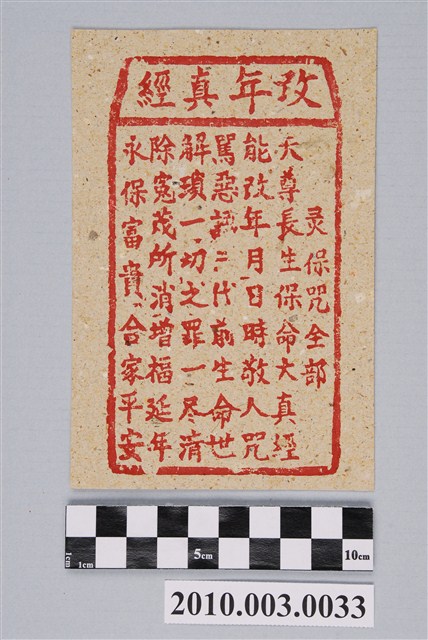 攷年真經
灵保咒全部
天尊長生保命大真經
能攷年月日時敬人咒
罵惡二代前生命世
解瑣一切之罪一尽清
除冤茂所消增福延年
永保富貴合家平安
1cm
1cm
5cm
10cm
2010.003.0033